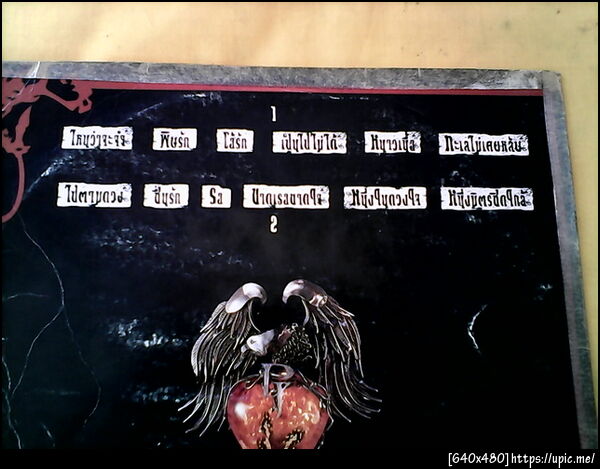 1
ไหนว่าจะจำ พิษรัก โล้รัก เป็นไปไม่ได้ หนาวเนื้อ ทะเลไม่เคยหลับ
ไปตามดวง ชื่นรัก รอ ขาดเธอขาดใจ หนึ่งในดวงใจ หนึ่งมิตรชิดใกล้
2
[640x480]https://upic.me/